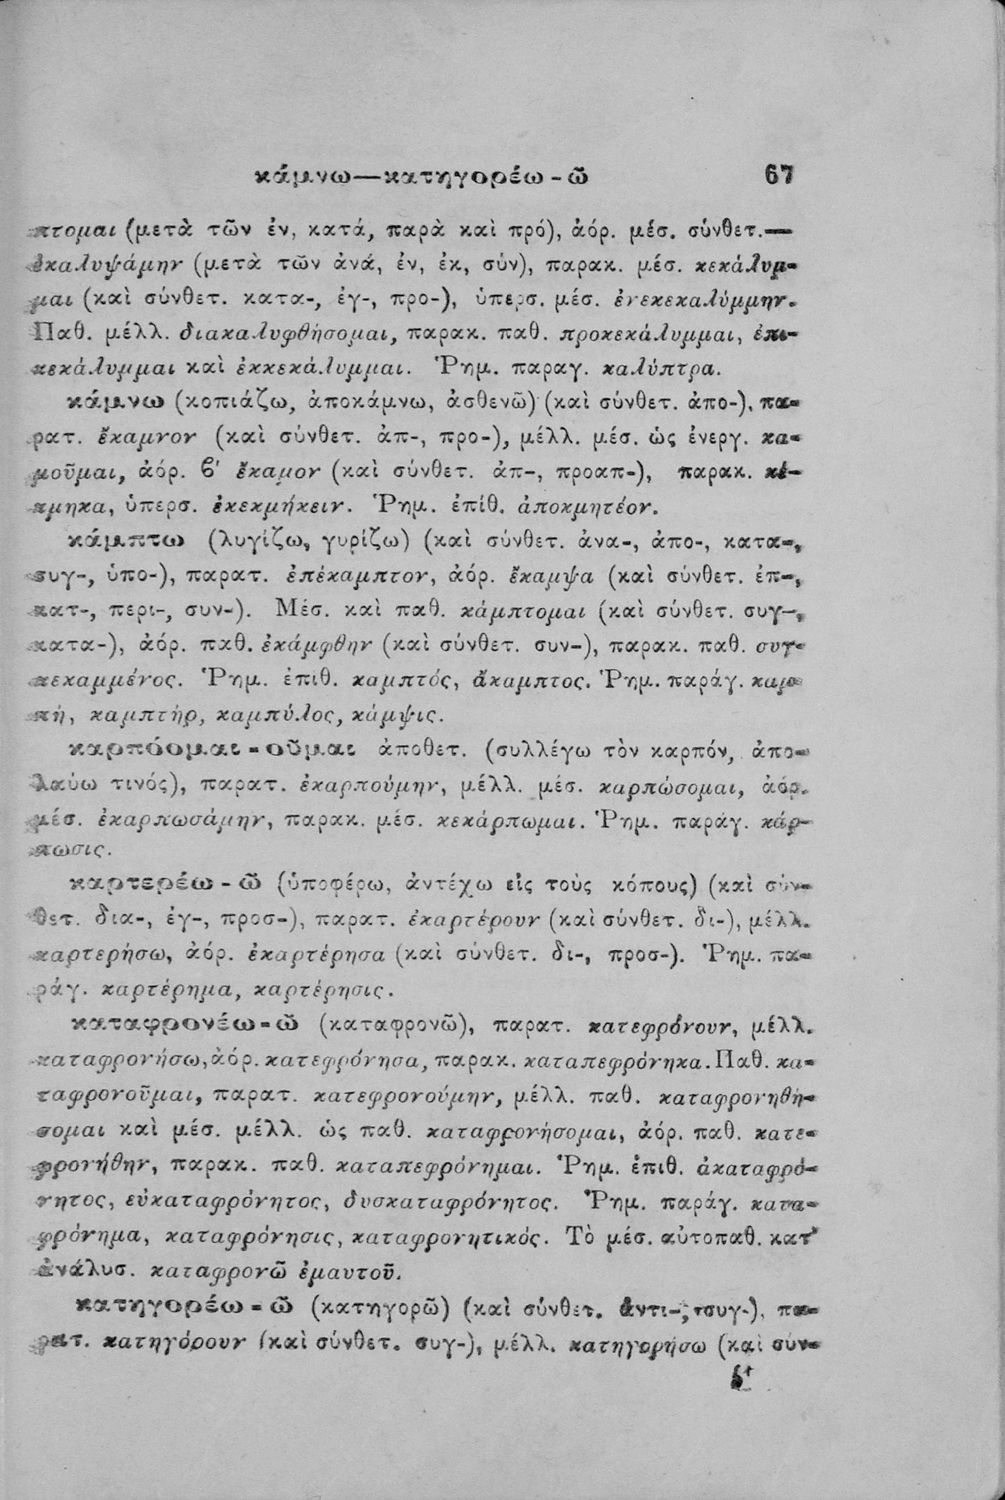 κάμνω—κατηγορέω-ῶ 67
πτομαι (μετὰ τῶν ἐν, κατά, παρὰ καὶ πρό), ἀόρ. μέσ. σύνθετ.—
ἐκαλυψάμην (μετὰ τῶν ἀνά, ἐν, ἐκ, σύν), παρακ. μέσ. κεκάλυμ-
μαι (καὶ σύνθετ. κατα-, ἐγ-, προ-), ὑπερσ. μέσ. ἐνεκεκαλύμμην.
Παθ. μέλλ. διακαλυφθήσομαι, παρακ. παθ. προκεκάλυμμαι, ἐπι-
κεκάλυμμαι καὶ ἐκκεκάλυμμαι. Ῥημ. παραγ. καλύπτρα.
κάμνω (κοπιάζω, ἀποκάμνω, ἀσθενῶ) (καὶ σύνθετ. ἀπο-), πα-
ρατ. ἔκαμνον (καὶ σύνθετ. ἀπ-, προ-), μέλλ. μέσ. ὡς ἐνεργ. κα-
μοῦμαι, ἀόρ. β' ἔκαμον (καὶ σύνθετ. ἀπ-, προαπ-), παρακ. κέ-
κμηκα, ὑπερσ. ἐκεκμήκειν. Ῥημ. ἐπίθ. ἀποκμητέον.
κάμπτω (λυγίζω, γυρίζω) (καὶ σύνθετ. ἀνα-, ἀπο-, κατα-,
συγ-, ὑπο-), παρατ. ἐπέκαμπτον, ἀόρ. ἔκαμψα (καὶ σύνθετ. ἐπ-,
κατ-, περι-, συν-). Μέσ. καὶ παθ. κάμπτομαι (καὶ σύνθετ. συγ-,
κατα-), ἀόρ. παθ. ἐκάμφθην (καὶ σύνθετ. συν-), παρακ. παθ. συγ-
κεκαμμένος. Ῥημ. ἐπιθ. καμπτός, ἄκαμπτος. Ῥημ. παράγ. καμ-
πή, καμπτήρ, καμπύλος, κάμψις.
καρπόομαι-οῦμαι ἀποθετ. (συλλέγω τὸν καρπόν, ἀπο-
λαύω τινός), παρατ. ἐκαρπούμην, μέλλ. μέσ. καρπώσομαι, ἀόρ.
μέσ. ἐκαρπωσάμην, παρακ. μέσ. κεκάρπωμαι. Ῥημ. παράγ. κάρ-
πωσις.
καρτερέω-ῶ (ὑποφέρω, ἀντέχω εἰς τοὺς κόπους) (καὶ σύν-
θετ. δια-, ἐγ-, προσ-), παρατ. ἐκαρτέρουν (καὶ σύνθετ. δι-), μέλλ.
καρτερήσω, ἀόρ. ἐκαρτέρησα (καὶ σύνθετ. δι-, προσ-). Ῥημ. πα-
ράγ. καρτέρημα, καρτέρησις.
καταφρονέω-ῶ (καταφρονῶ), παρατ. κατεφρόνουν, μέλλ.
καταφρονήσω, ἀόρ. κατεφρόνησα, παρακ. καταπεφρόνηκα. Παθ. κα-
ταφρονοῦμαι, παρατ. κατεφρονούμην, μέλλ. παθ. καταφρονηθή-
σομαι καὶ μέσ. μέλλ. ὡς παθ. καταφρονήσομαι, ἀόρ. παθ. κατε-
φρονήθην, παρακ. παθ. καταπεφρόνημαι. Ῥημ. ἐπιθ. ἀκαταφρό-
νητος, εὐκαταφρόνητος, δυσκαταφρόνητος. Ῥημ. παράγ. κατα-
φρόνημα, καταφρόνησις, καταφρονητικός. Τὸ μέσ. αὐτοπαθ. κατ'
ἀνάλυσ. καταφρονῶ ἐμαυτοῦ.
κατηγορέω-ῶ (κατηγορῶ) (καὶ σύνθετ. ἀντι-, συγ-), πα-
ρατ. κατηγόρουν (καὶ σύνθετ. συγ-), μέλλ. κατηγορήσω (καὶ σύν-